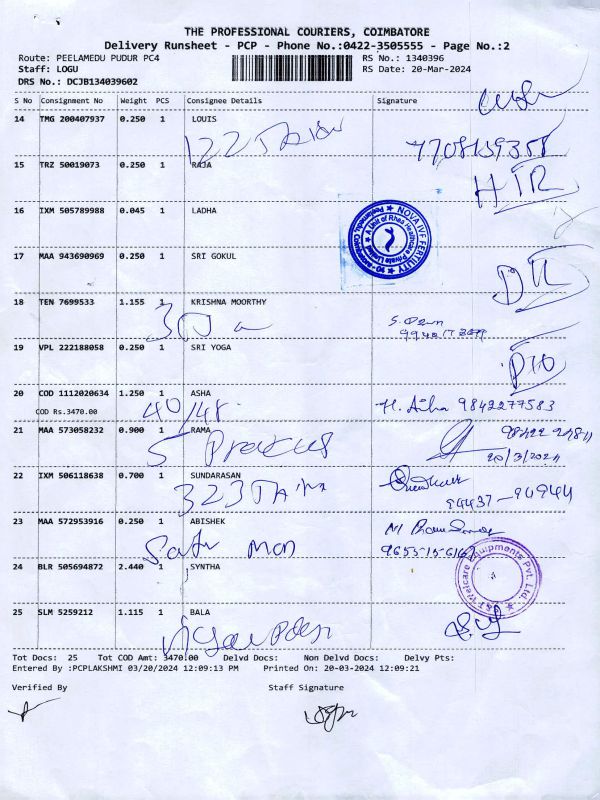 THE PROFESSIONAL COURIERS, COIMBATORE
Delivery Runsheet - PCP - Phone No.:0422-3505555 - Page No.:2
Route: PEELAMEDU PUDUR PC4 RS No.: 1340396
Staff: LOGU RS Date: 20-Mar-2024
DRS No.: DCJB134039602
S No Consignment No Weight PCS Consignee Details Signature
14 TMG 200407937 0.250 1 LOUIS
122
15 TRZ 50019073 0.250 1 RAJA
16 IXM 505789988 0.045 1 LADHA
NOVA IVF FERTILITY
A Unit of Rhea Healthcare Private Limited
17 MAA 943690969 0.250 1 SRI GOKUL
18 TEN 7699533 1.155 1 KRISHNA MOORTHY
19 VPL 222188058 0.250 1 SRI YOGA
20 COD 1112020634 1.250 1 ASHA
COD Rs.3470.00
40/48 H. Aisha 9842277583
21 MAA 573058232 0.900 1 RAMA
20/3/2024
22 IXM 506118638 0.700 1 SUNDARASAN
323
94437-90944
23 MAA 572953916 0.250 1 ABISHEK
24 BLR 505694872 2.440 1 SYNTHA
Welcare Equipments Pvt. Ltd.
25 SLM 5259212 1.115 1 BALA
Tot Docs: 25 Tot COD Amt: 3470.00 Delvd Docs: Non Delvd Docs: Delvy Pts:
Entered By :PCPLAKSHMI 03/20/2024 12:09:13 PM Printed On: 20-03-2024 12:09:21
Verified By Staff Signature